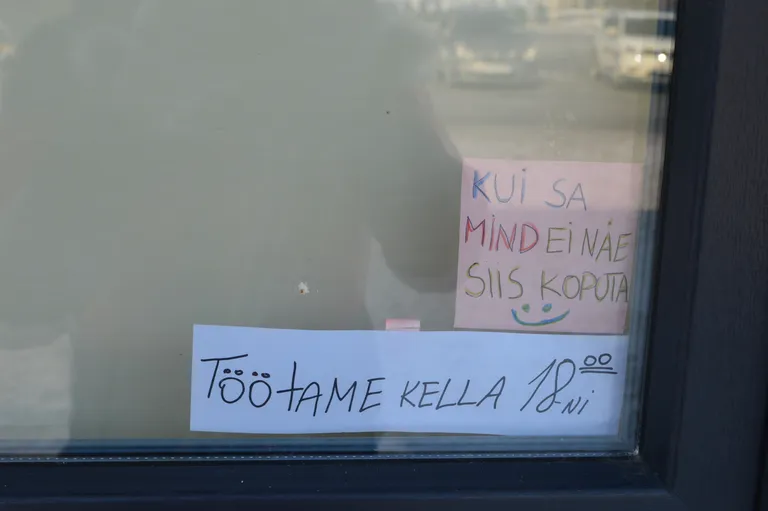 KUI SA
MIND EI NÄE
SIIS KOPUTA
TÖÖTAME KELLA 18⁰⁰-NI